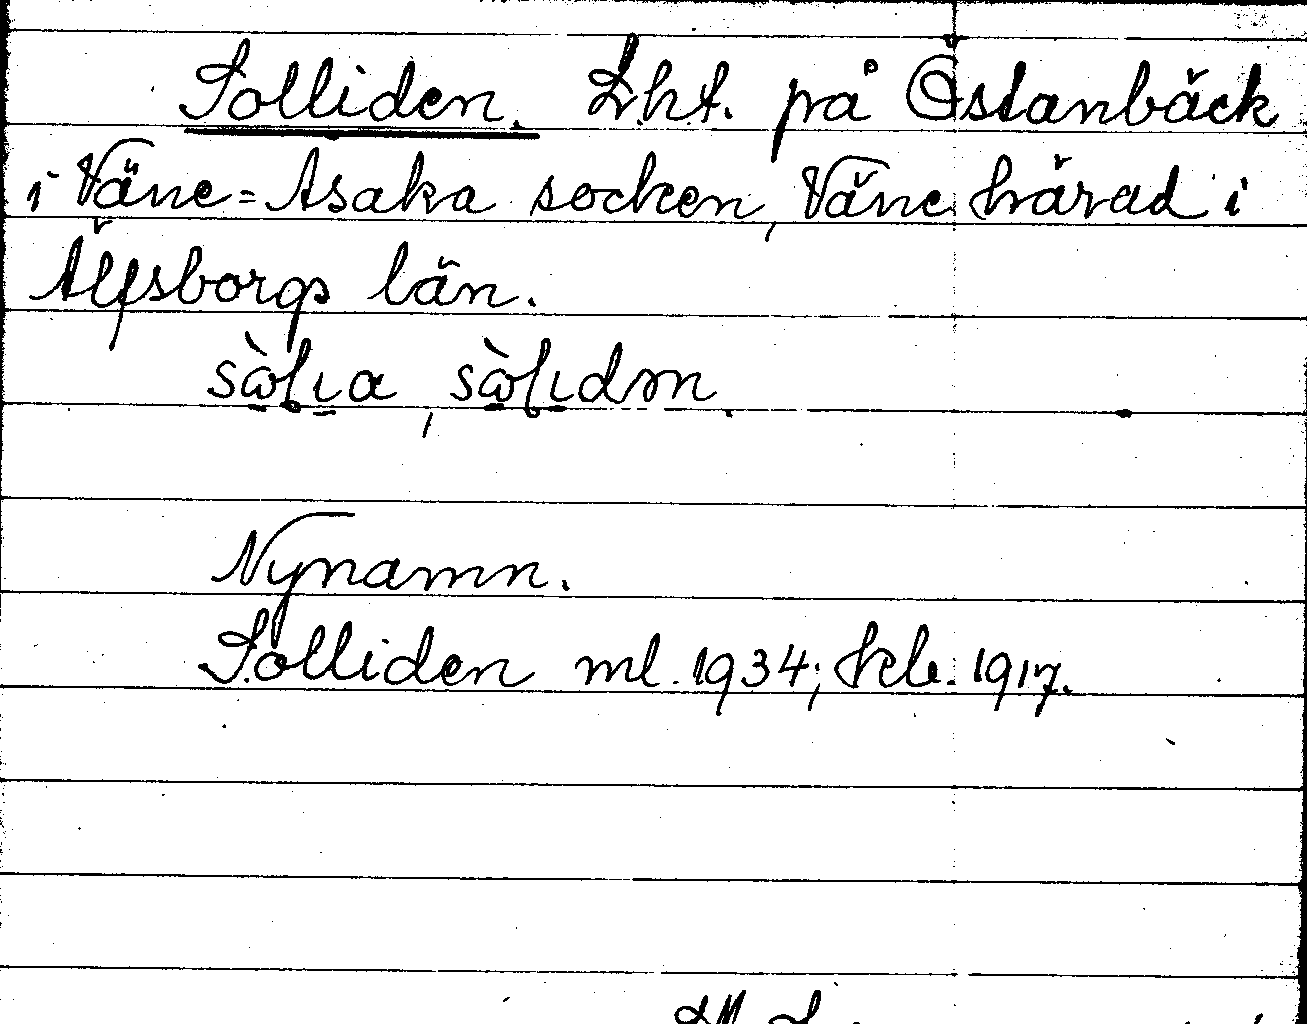 Solliden. Lht. på Östanbäck
i Väne=Åsaka socken, Väne härad i
Älfsborgs län.
Nynamn.
Solliden ml. 1934; Kb. 1917.